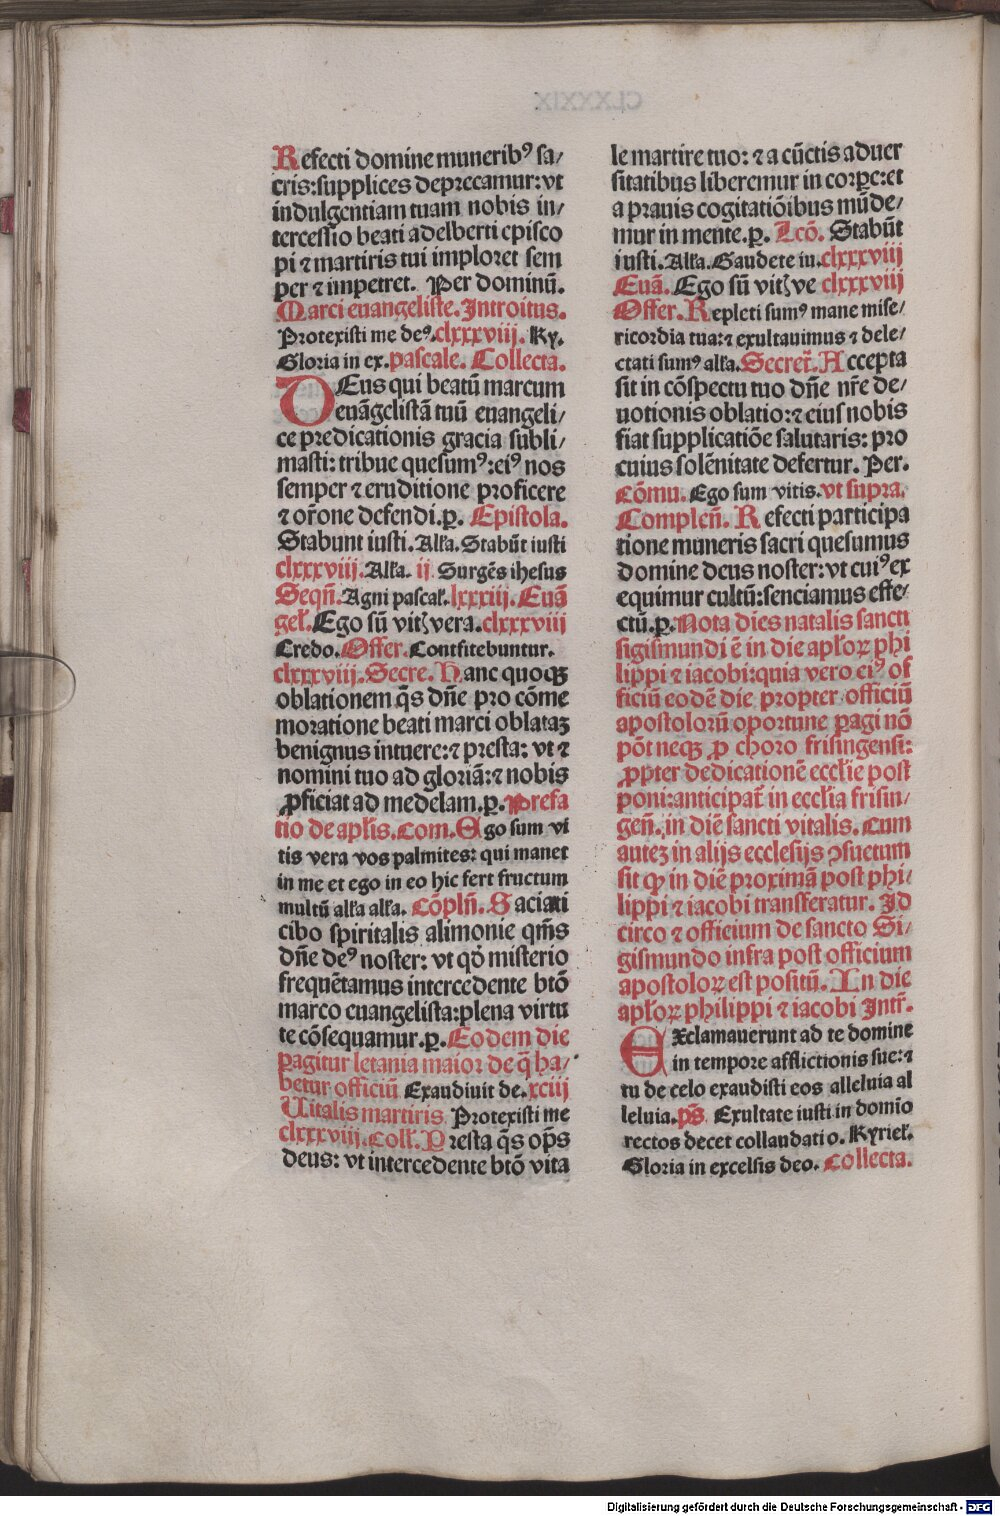 Refecti domine munerib⁹ sa/
cris:supplices deprecamur:vt
indulgentiam tuam nobis in/
tercessio beati adelberti episco
pi ⁊ martiris tui imploret sem
per ⁊ impetret. Per dominū.
Marci euangeliste. Introitus.
Protexisti me de⁹.clxxxviij. Ky.
Gloria in ex.pascale. Collecta.
DEus qui beatū marcum
euāgelistā tuū euangeli/
ce predicationis gracia subli/
masti: tribue quesum⁹:ei⁹ nos
semper ⁊ eruditione proficere
⁊ or̄one defendi.ꝑ. Epistola.
Stabunt iusti.Alľa.Stabūt iusti
clxxxviij.Alľa. ij. Surgēs ihesus
Seqn̄.Agni pascaľ.lxxxiij. Euā
geľ.Ego sū vitꝭ vera.clxxxviij
Credo.Offer.Confitebuntur.
clxxxviij.Secre. Hanc quoqꝫ
oblationem q̄s dn̄e pro cōme
moratione beati marci oblataꝫ
benignus intuere:⁊ presta: vt ⁊
nomini tuo ad gloriā:⁊ nobis
ꝓficiat ad medelam.ꝑ.Prefa
tio de apľis.Com.Ego sum vi
tis vera vos palmites: qui manet
in me et ego in eo hic fert fructum
multū alľa alľa. Cōpln̄. Saciati
cibo spiritalis alimonie qm̄s
dn̄e de⁹ noster: vt qd̓ misterio
frequētamus intercedente btō
marco euangelista:plena virtu
te cōsequamur.ꝑ.Eodem die
pagitur letania maior de q̄ ha/
betur officiū Exaudiuit de.xciij
Uitalis martiris Protexisti me
clxxxviij.Colľ. Presta q̄s op̄s
deus: vt intercedente btō vita
le martire tuo: ⁊ a cūctis aduer
sitatibus liberemur in corpe:et
a prauis cogitatiōibus mūde/
mur in mente.ꝑ. Lcō. Stabūt
iusti.Alľa.Gaudete iu.clxxxviij
Euā. Ego sū vitꝭ ve clxxxviij
Offer. Repleti sum⁹ mane mise/
ricordia tua:⁊ exultauimus ⁊ dele/
ctati sum⁹ alľa.Secret̄. Accepta
sit in cōspectu tuo dn̄e nr̄e de/
uotionis oblatio:⁊ eius nobis
fiat supplicatiōe salutaris: pro
cuius solēnitate defertur. Per.
Cōmu. Ego sum vitis.vt supra.
Complen̄. Refecti participa
tione muneris sacri quesumus
domine deus noster:vt cui⁹ ex
equimur cultū:senciamus effe/
ctū.ꝑ.Nota dies natalis sancti
sigismundi ē in die apľoꝝ phi
lippi ⁊ iacobi:quia vero ei⁹ of
ficiū eodē die propter officiū
apostolorū oportune pagi nō
pōt neqꝫ ꝓ choro frisingensi:
ꝓpter dedicationē eccľie post
poni:anticipat̄ in eccľia frisin/
gen̄.in diē sancti vitalis. Cum
auteꝫ in alijs ecclesijs ꝯsuetum
sit qꝫ in diē proximā post phi/
lippi ⁊ iacobi transferatur. Id
circo ⁊ officium de sancto Si/
gismundo infra post officium
apostoloꝝ est positū. In die
apľoꝝ philippi ⁊ iacobi Intr̄.
EXclamauerunt ad te domine
in tempore afflictionis sue:⁊
tu de celo exaudisti eos alleluia al
leluia.ps̄. Exultate iusti in domīo
rectos decet collaudatio. Kyrieľ.
Gloria in excelsis deo. Collecta.
Digitalisierung gefördert durch die Deutsche Forschungsgemeinschaft - DFG